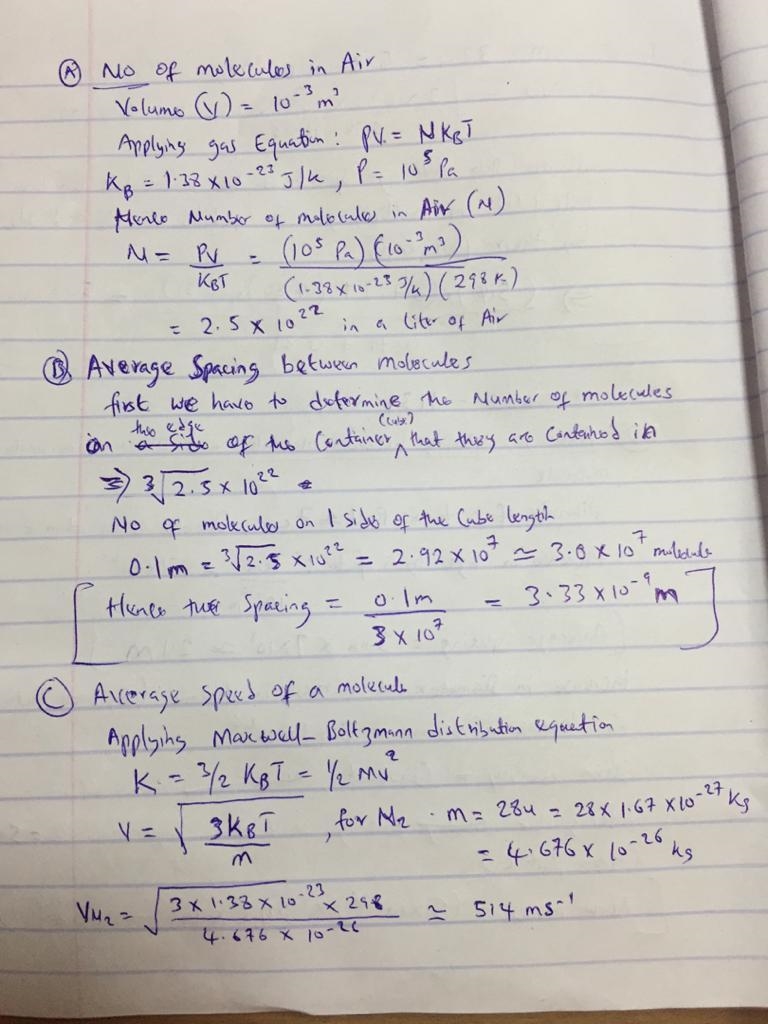 Ⓐ No of molecules in Air
Volume (V) = 10⁻³ m³
Applying gas Equation: PV = NKBT
KB = 1.38 x10⁻²³ J/k, P = 10⁵ Pa
Hence Number of molecules in Air (N)
N = PV/KBT = (10⁵ Pa)(10⁻³m³)/(1.38x10⁻²³ J/k)(298 K)
= 2.5 x 10²² in a liter of Air
Ⓑ Average Spacing between molecules
first we have to determine the Number of molecules
on the edge of the Container (cube) that they are Contained in
⇒ ∛2.5 x 10²²
No of molecules on 1 side of the Cube length
0.1m = ∛2.5 x10²² = 2.92 x 10⁷ ≃ 3.0 x 10⁷ molecule
[Hence the Spacing = 0.1m/3 x 10⁷ = 3.33 x 10⁻⁹ m]
Ⓒ Average Speed of a molecule
Applying Maxwell-Boltzmann distribution equation
K = 3/2 KBT = 1/2 MV²
V = √3KBT/m, for N₂ . m = 28u = 28 x 1.67 x10⁻²⁷ Kg
= 4.676 x 10⁻²⁶ kg
VN₂ = √3 x 1.38 x 10⁻²³ x 298/4.676 x 10⁻²⁶ ≃ 514 ms⁻¹